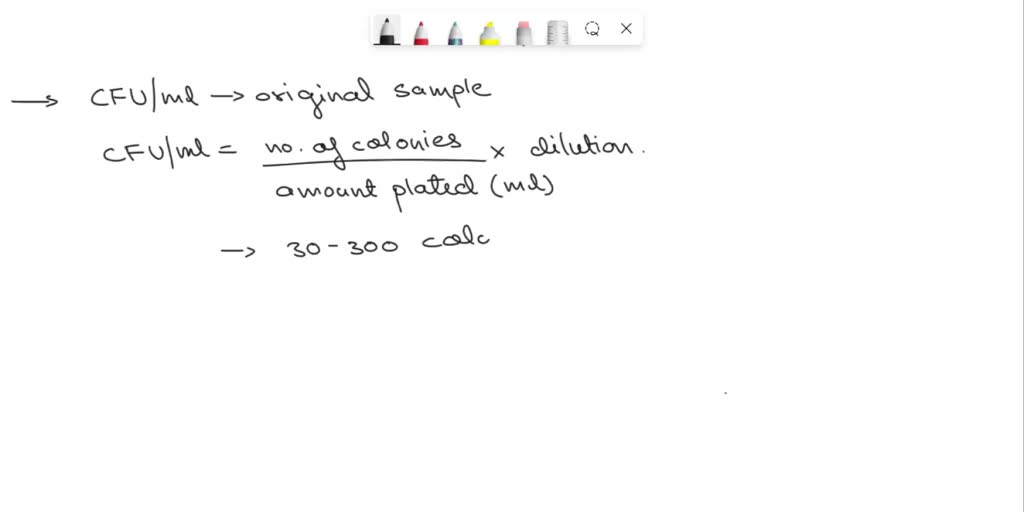 → CFU/ml → original sample
CFU/ml = no. of colonies / amount plated (ml) × dilution.
→ 30-300 calc